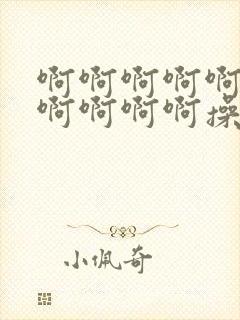 啊啊啊啊啊
啊啊啊啊操
小佩奇